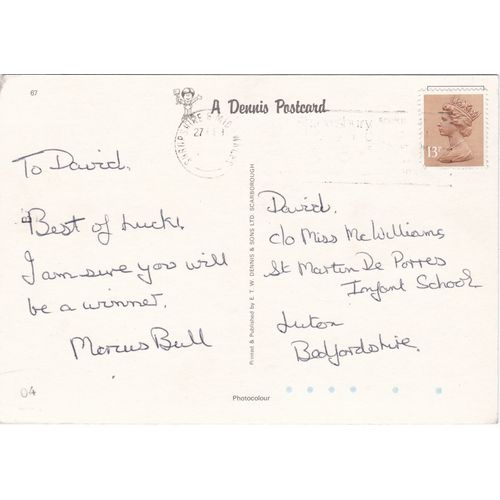 67
A Dennis Postcard
13P
To David,
Best of Luck,
I am sure you will
be a winner.
Marcus Bull
04
Printed & Published by E. T. W. DENNIS & SONS LTD. SCARBOROUGH
David,
c/o Miss McWilliams
St Martin De Porres
Infant School
Luton
Bedfordshire.
Photocolour